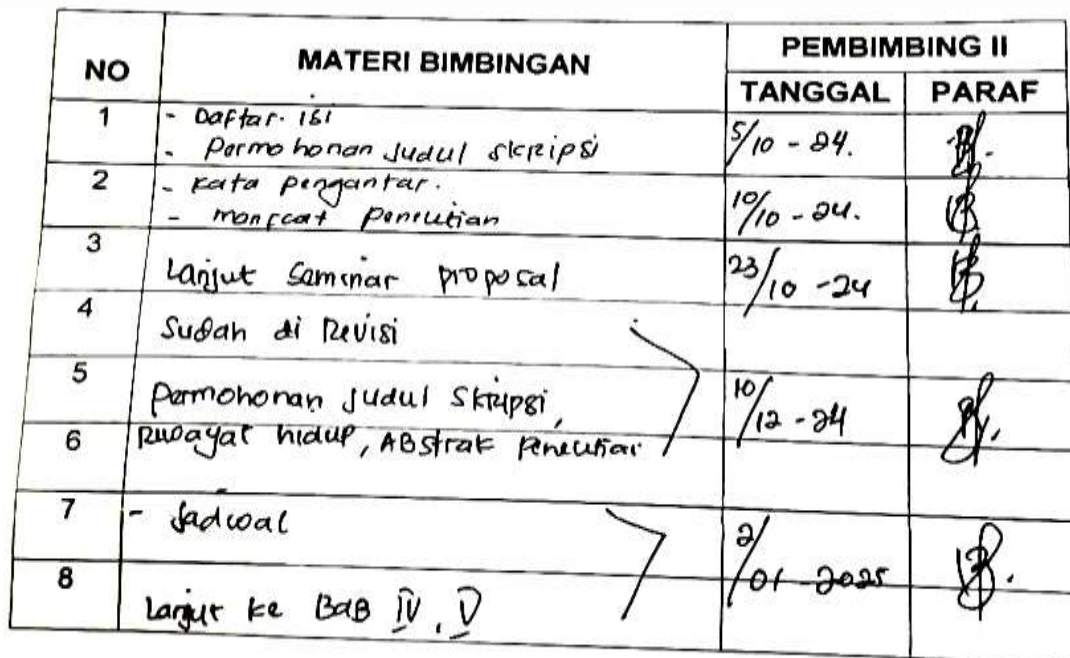 NO MATERI BIMBINGAN PEMBIMBING II
TANGGAL PARAF
1 - Daftar isi 5/10 - 24.
- Permohonan Judul skripsi
2 - Kata pengantar. 10/10 - 24.
- manfaat Penelitian
3 Lanjut Seminar proposal 23/10 - 24
4 Sudah di Revisi
5 Permohonan Judul Skripsi, 10/12 - 24
6 Riwayat hidup, ABstrak Penelitian
7 - Jadwal 2/01 - 2025
8 Lanjut ke BaB IV, V